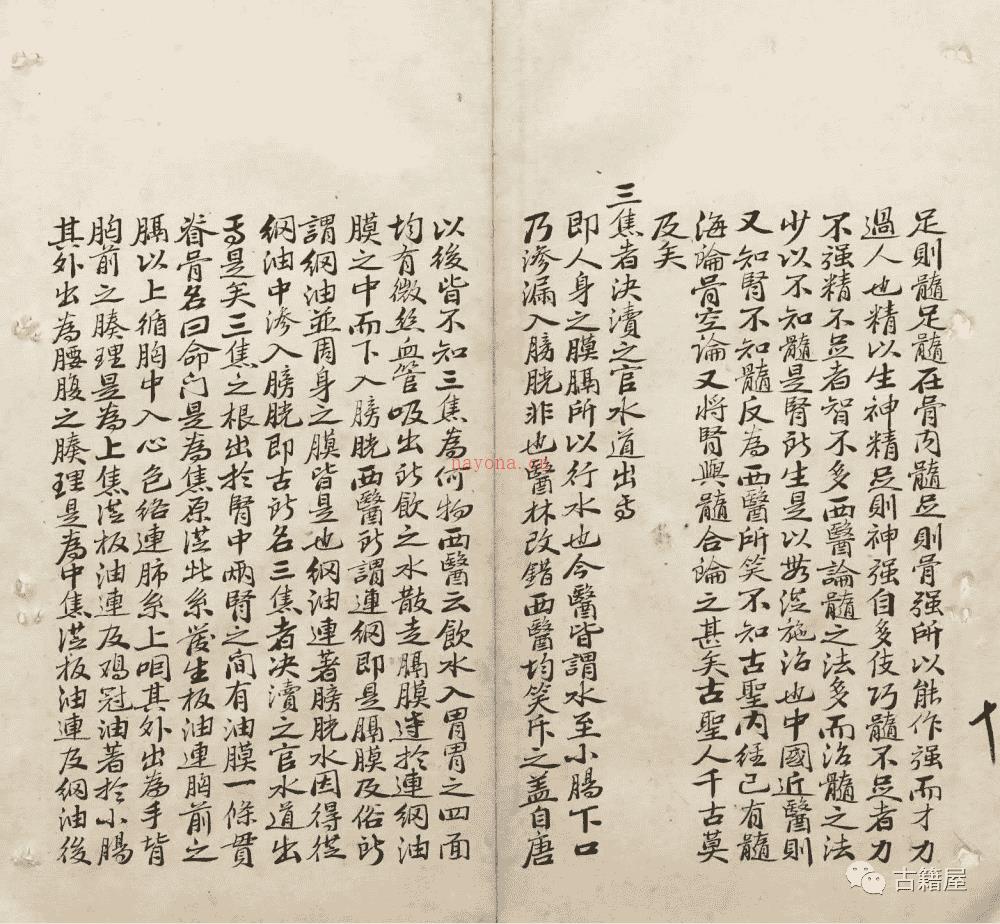 足則髓足髓在骨內髓足則骨强所以能作强而才力
過人也精以生神精足則神强自多伎巧髓不足者力
不强精不足者智不多西醫論髓之法多而治髓之法
少以不知髓是腎所生是以無從施治也中國近醫則
又知腎不知髓反為西醫所笑不知古聖內經已有髓
海論骨空論又將腎與髓合論之甚矣古聖人千古莫
及矣
三焦者決瀆之官水道出焉
即人身之膜膈所以行水也今醫皆謂水至小腸下口
乃滲漏入膀胱非也醫林改錯西醫均笑斥之盖自唐
十
以後皆不知三焦為何物西醫云飲水入胃胃之四面
均有微絲血管吸出所飲之水散走膈膜達於連網油
膜之中而下入膀胱西醫所謂連網即是膈膜及俗所
謂網油並周身之膜皆是也網油連著膀胱水因得從
網油中滲入膀胱即古所名三焦者决瀆之官水道出
焉是矣三焦之根出於腎中兩腎之間有油膜一條貫
脊骨名曰命門是為焦原從此系發生板油連胸前之
膈以上循胸中入心包絡連肺系上咽其外出為手背
胸前之腠理是為上焦從板油連及鷄冠油著於小腸
其外出為腰腹之腠理是為中焦從板油連及網油後
nayona.cn
古籍屋